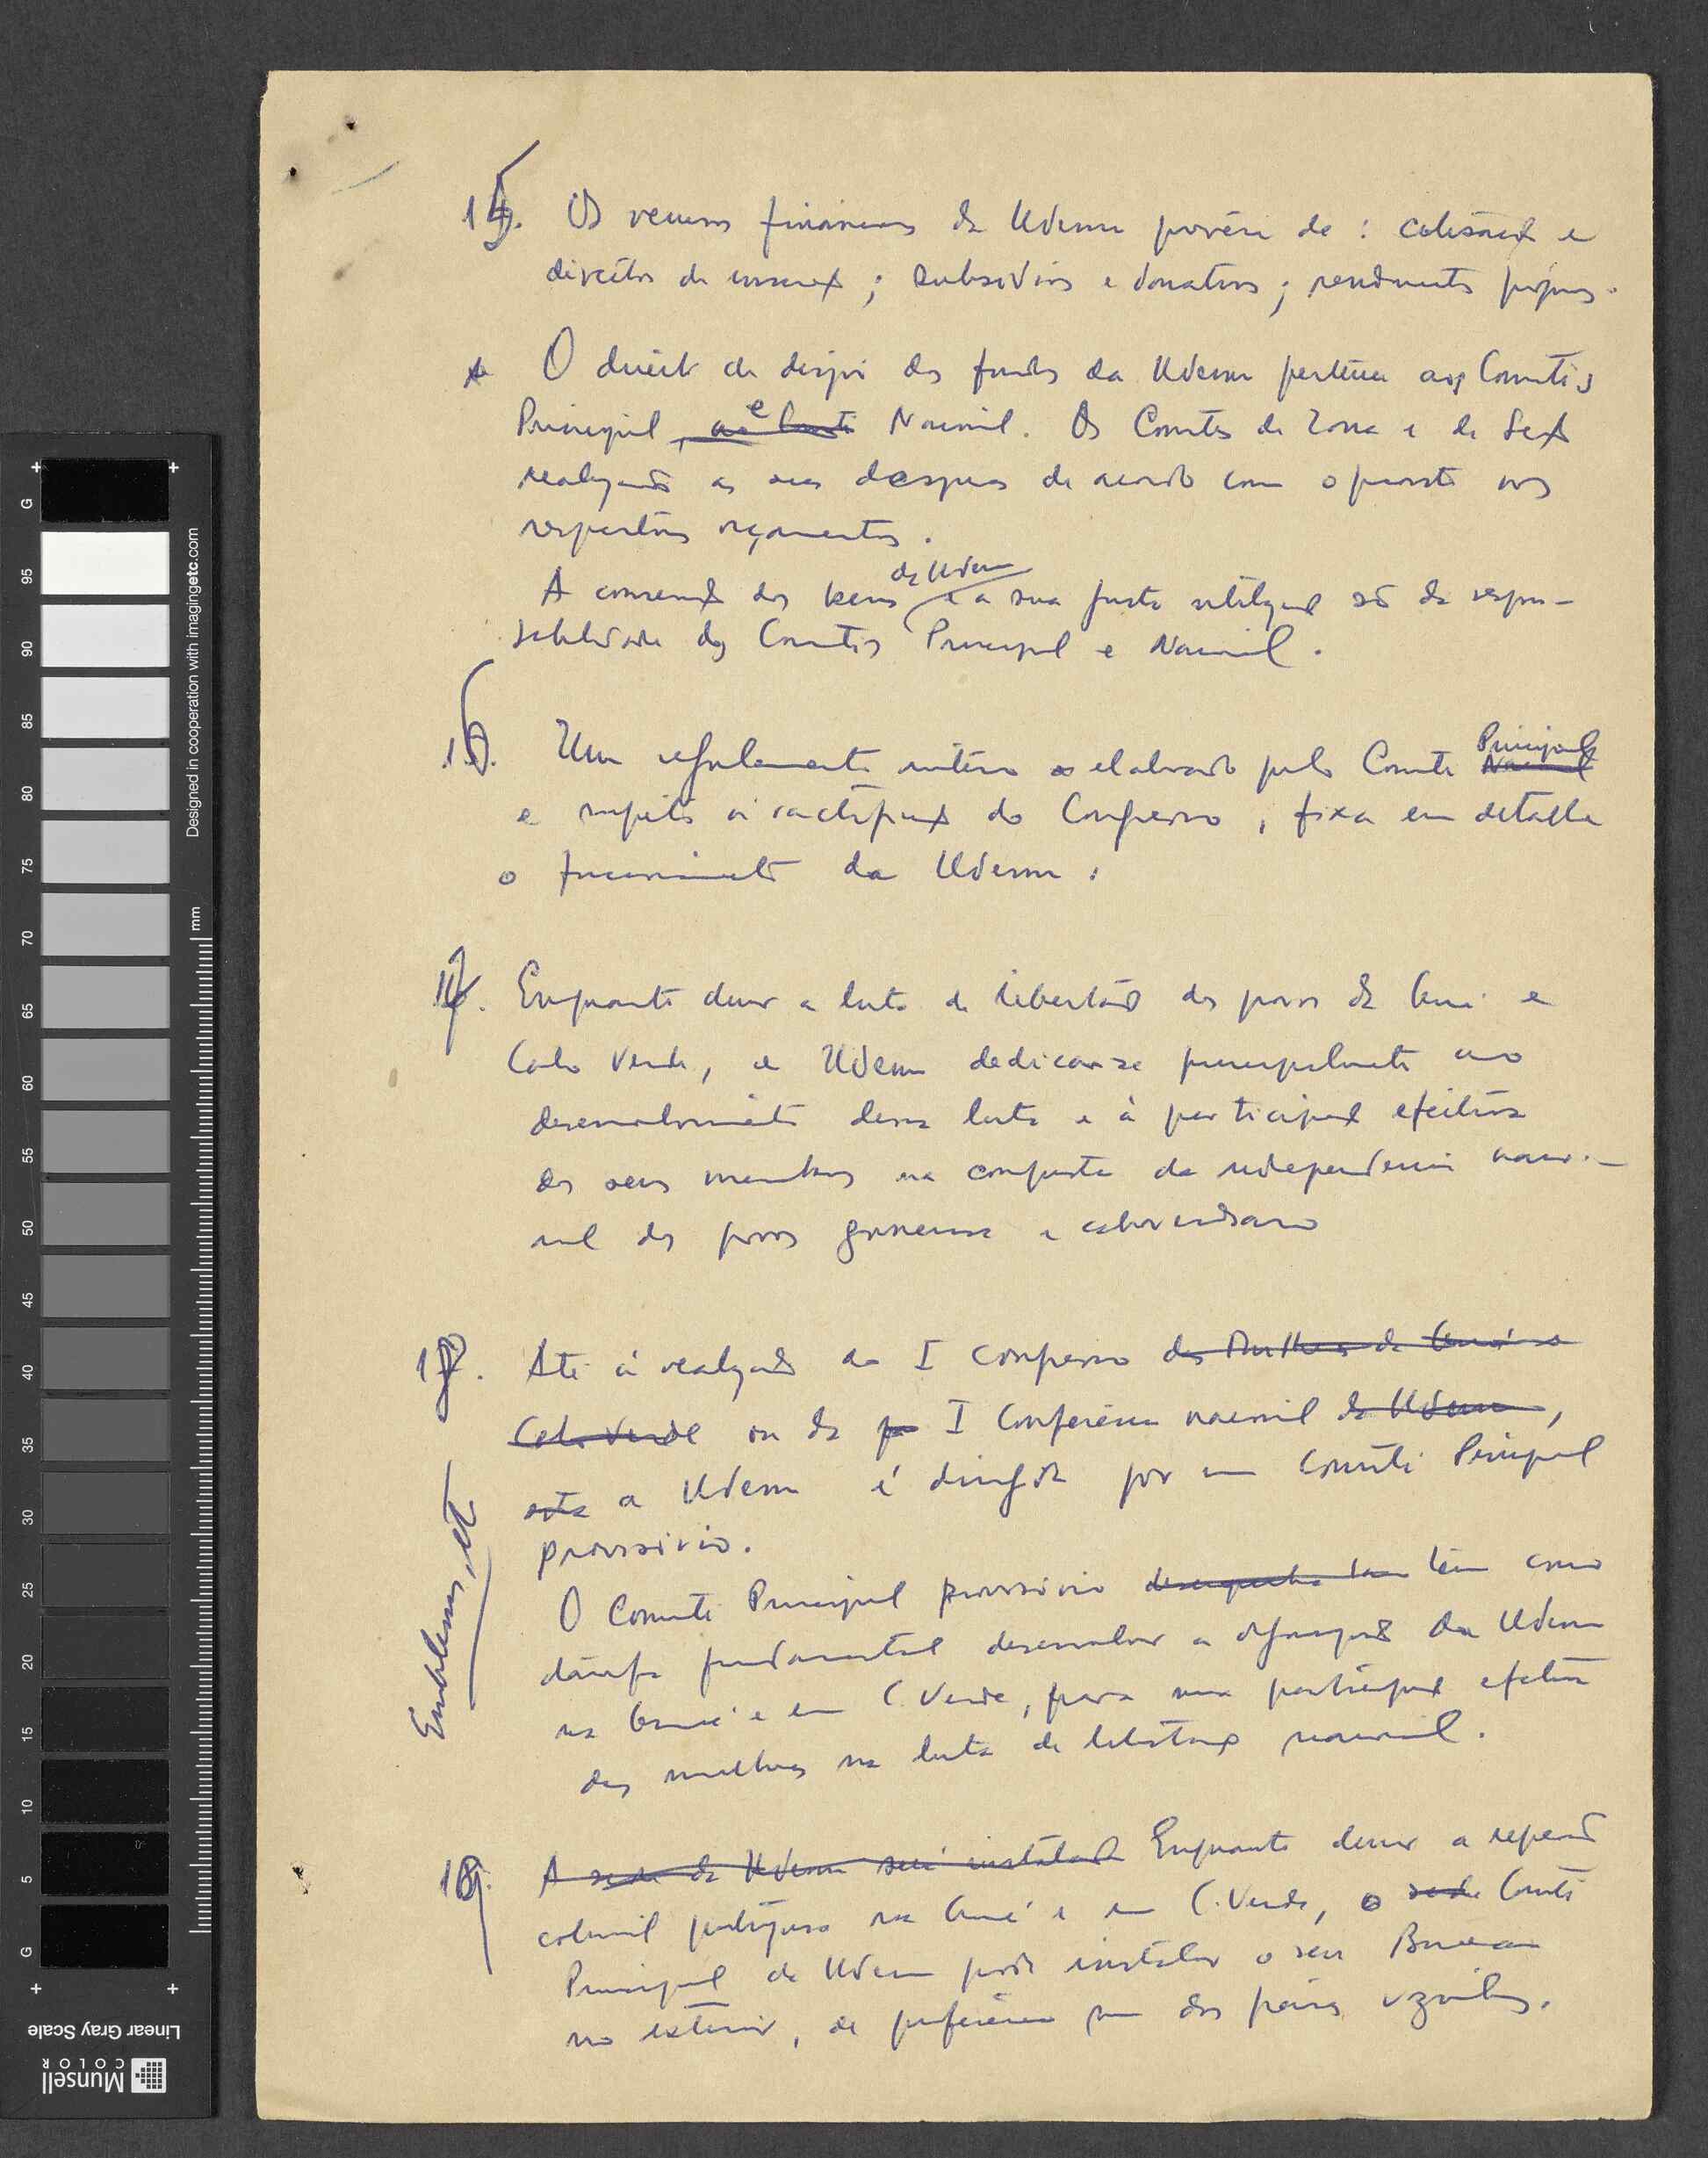 15. Os recursos financeiros da Udemu provêm de: cotizações e
direitos de inscrição; subsídios e donativos; rendimentos próprios.
O direito de dispor dos fundos da Udemu pertence aos Comités
Principal, ao Comité e Nacional. Os Comités de Zona e de Secção
realizando as suas despesas de acordo com o previsto nos
respectivos orçamentos.
da Udemu
A conservação dos bens e a sua justa utilização são da respon-
sabilidade dos Comités Principal e Nacional.
16. Um regulamento interno elaborado pelo Comité Nacional Principal
e sujeito à ractificação do Congresso, fixa em detalhe
o funcionamento da Udemu.
17. Enquanto durar a luta de libertação dos povos da Guiné e
Cabo Verde, a Udemu dedicar-se principalmente ao
desenvolvimento dessa luta e à participação efectiva
dos seus membros na conquista da independência nacio-
nal dos povos guineense e caboverdeano
18. Até à realização do I Congresso das Mulheres da Guiné e
Cabo Verde ou da I Conferência nacional da Udemu,
esta a Udemu é dirigida por um Comité Principal
provisório.
Emblemas, etc
O Comité Principal provisório desempenha tem como
tarefa fundamental desenvolver a organização da Udemu
na Guiné e em C. Verde, para uma participação efectiva
das mulheres na luta de libertação nacional.
19. A sede da Udemu será instalada Enquanto durar a repressão
colonial portuguesa na Guiné e em C. Verde, o sede Comité
Principal da Udemu pode instalar o seu Bureau
no exterior, de preferência num dos países vizinhos.
G 95 90 85 80 75 70 65 60 55 50 45 40 35 30 25 20 15 10 5 G
mm
Designed in cooperation with imagingetc.com
Linear Gray Scale
Munsell
COLOR